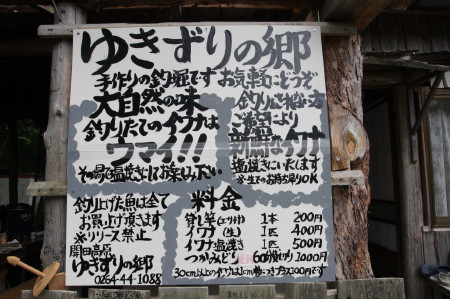 ゆきずりの郷
手作りの釣堀です お気軽にどうぞ
大自然の味
釣りたてのイワナは
ウマイ!!
その場で塩焼きにしてお楽しみ下さい
釣りされない方
ご希望により
新鮮なイワナ
塩焼きにいたします
生でのお持ち帰りOK
釣り上げた魚は全て
お買上げ頂きます
※リリース禁止
開田高原
ゆきずりの郷
0264-44-1088
料金
貸し竿(エサ付) 1本 200円
イワナ(生) 1匹 400円
イワナ塩焼き 1匹 500円
つかみどり 1000円
30cm以上のイワナは1cm毎につきプラス100円です